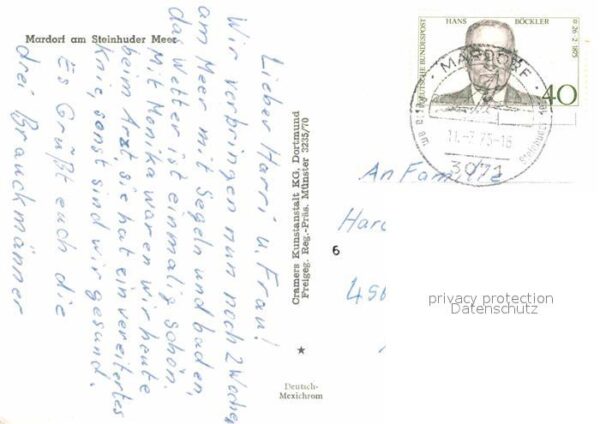 Mardorf am Steinhuder Meer
Lieber Harri u. Frau!
Wir verbringen nun noch 2 Wochen
am Meer mit Segeln und baden,
das Wetter ist einmalig schön.
Mit Monika waren wir heute
beim Arzt, sie hat ein vereitertes
Knie, sonst sind wir gesund.
Es Grüßt euch die
drei Brauckmänner
Cramers Kunstanstalt KG. Dortmund
Freigeg. Reg.-Präs. Münster 3235/70
6
★
Deutsch-
Mexichrom
DEUTSCHE BUNDESPOST
HANS BÖCKLER
✡ 26·2·1875
40
MARDORF
am
Steinhuder
11.-7.75-16
3071
An Familie
Har
450
privacy protection
Datenschutz